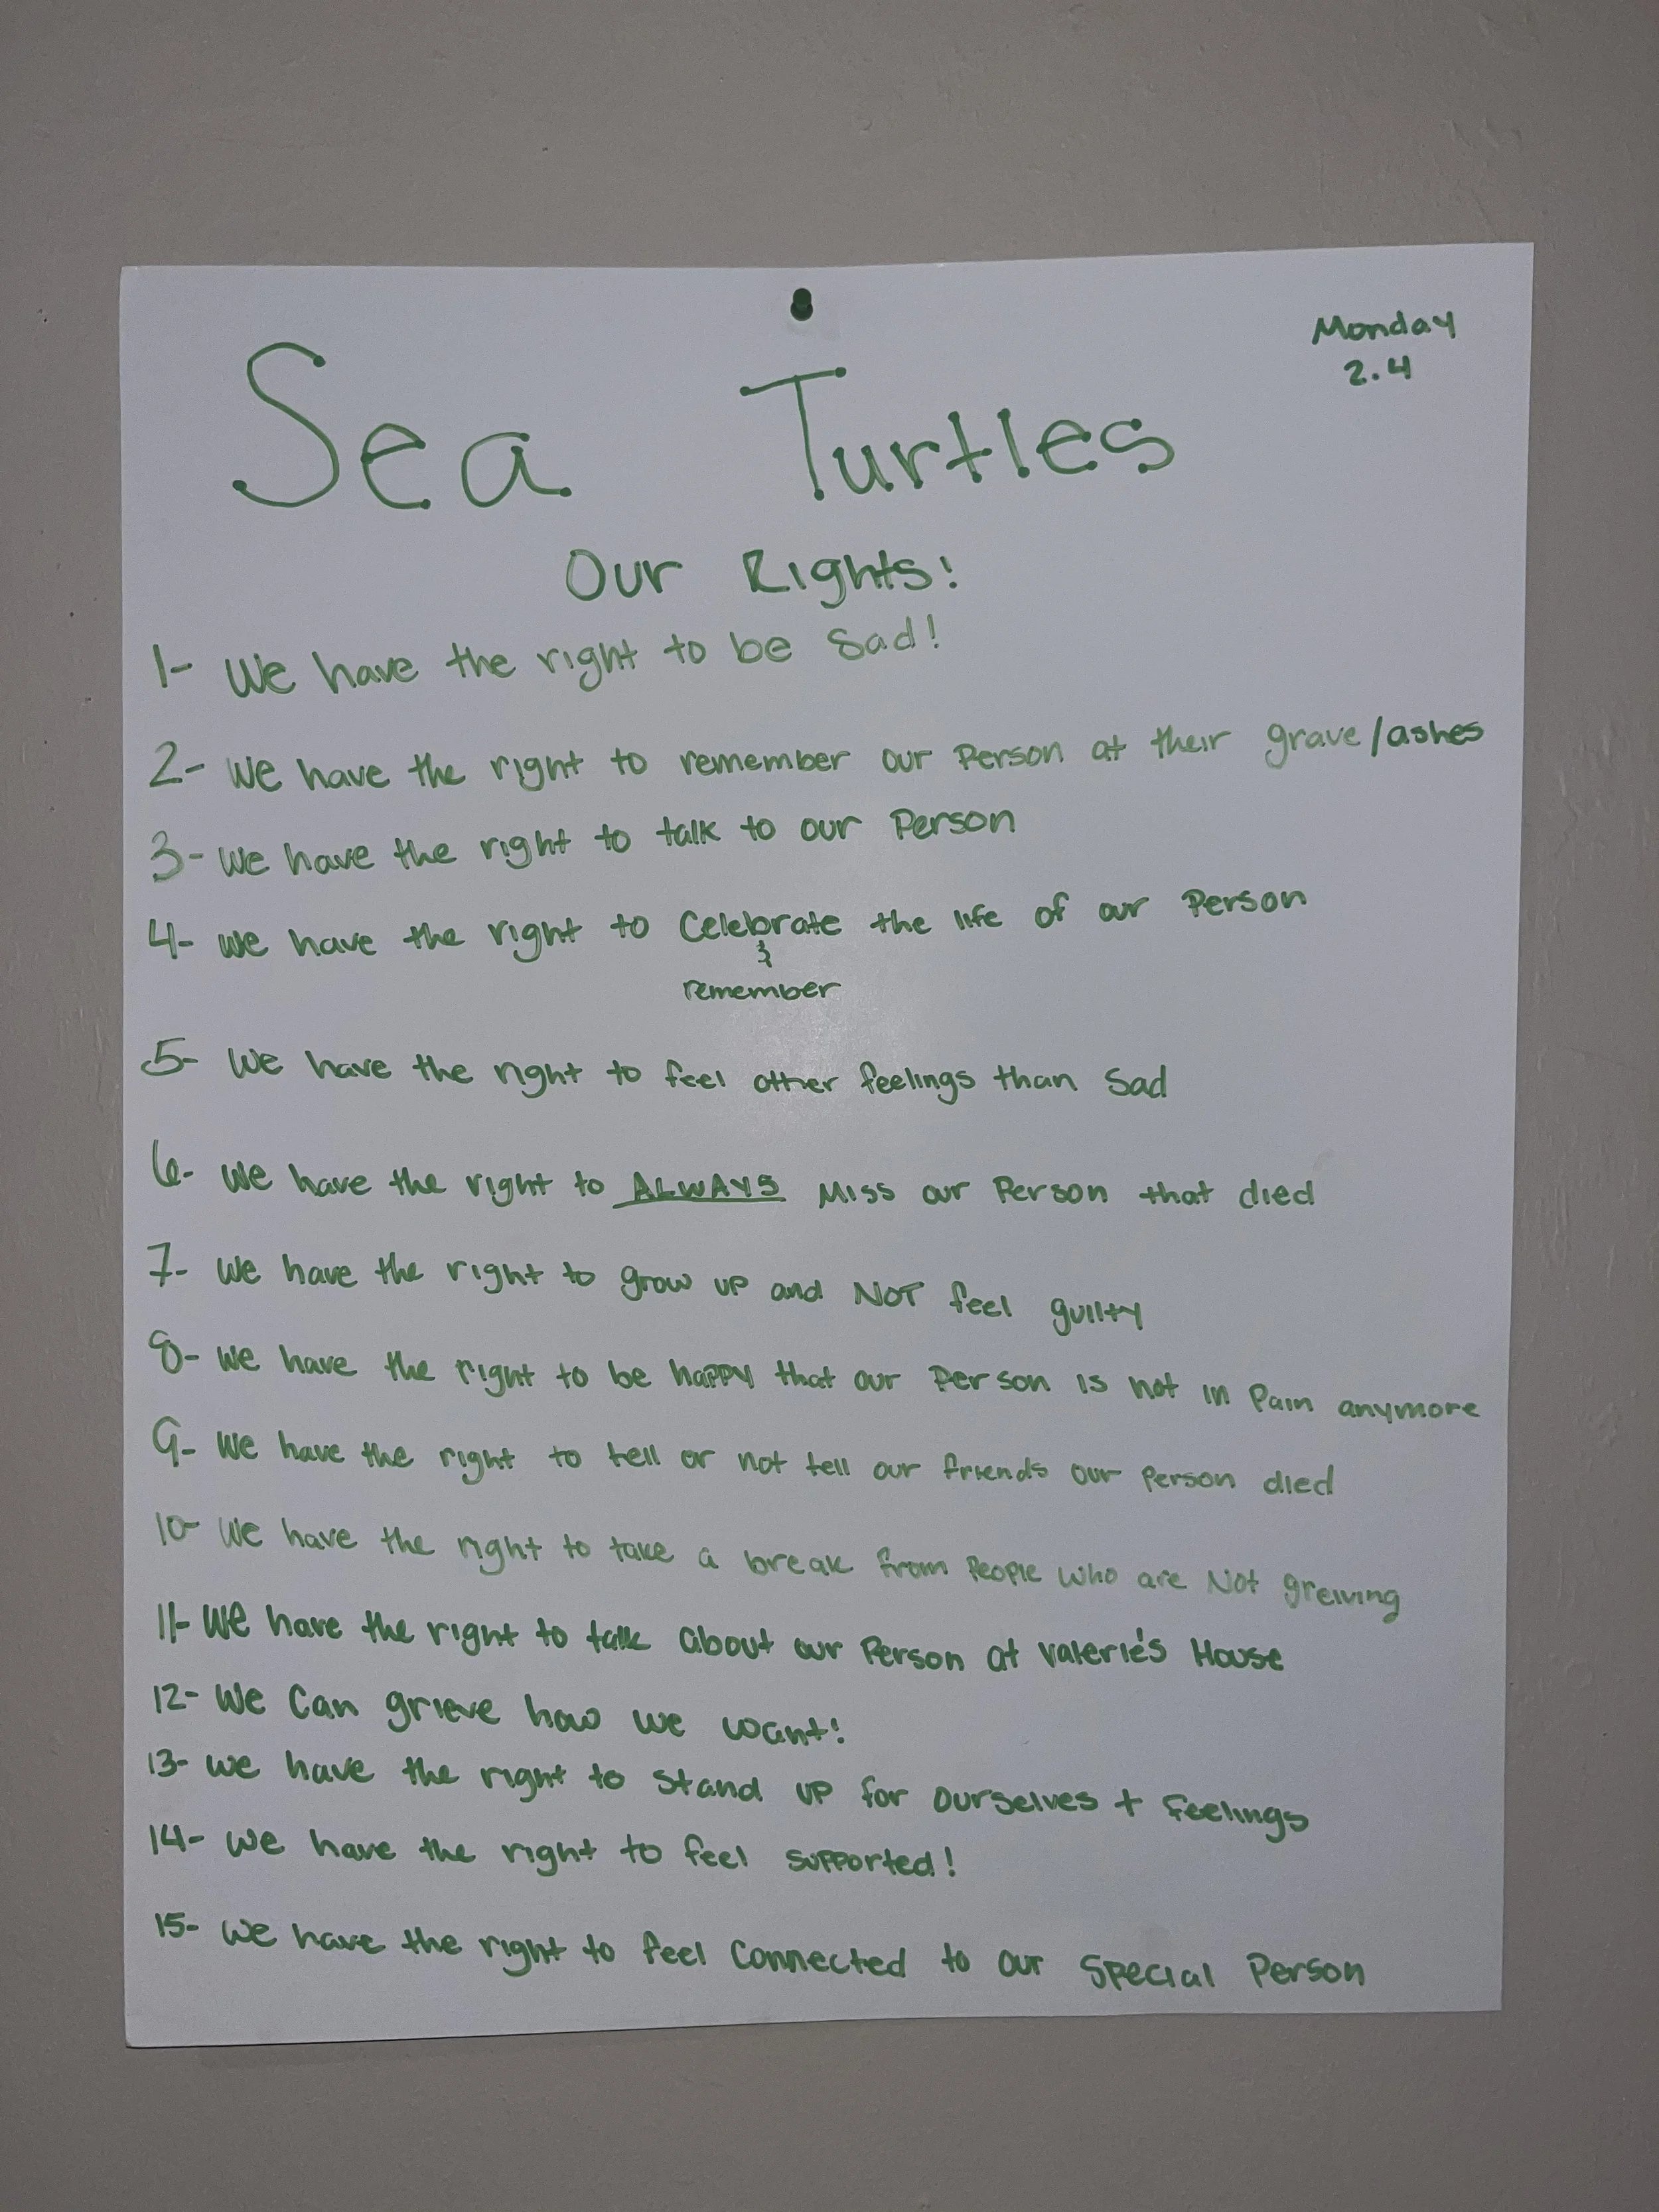 Monday
2.4
Sea Turtles
Our Rights:
1- We have the right to be sad!
2- We have the right to remember our Person at their grave/ashes
3- We have the right to talk to our Person
4- We have the right to Celebrate the life of our Person
&
remember
5- We have the right to feel other feelings than Sad
6- We have the right to ALWAYS Miss our Person that died
7- We have the right to grow up and NOT feel guilty
8- We have the right to be happy that our Person is not in Pain anymore
9- We have the right to tell or not tell our friends our Person died
10- We have the right to take a break from People who are Not greiving
11- We have the right to talk about our Person at Valerie's House
12- We Can grieve how we want!
13- We have the right to stand up for ourselves + feelings
14- We have the right to feel supported!
15- We have the right to feel Connected to our Special Person